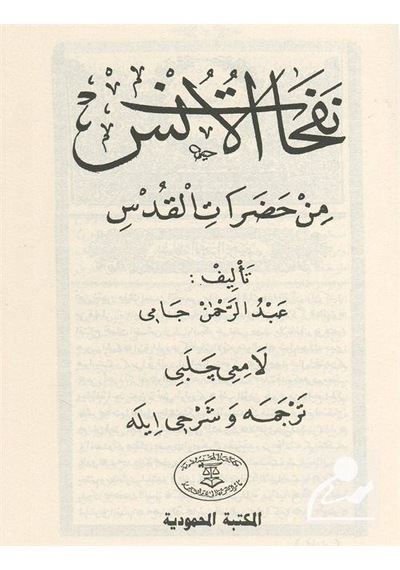 نفحات الأُنْس
مِنْ حَضَرَاتِ الْقُدْسِ
تَأْلِيفْ :
عَبْدُ الرَّحْمٰنْ جَامِى
لَامِعِى چَلَبِى
تَرْجَمَه وَ شَرْحِى اِيلَه
المكتبة المحمودية